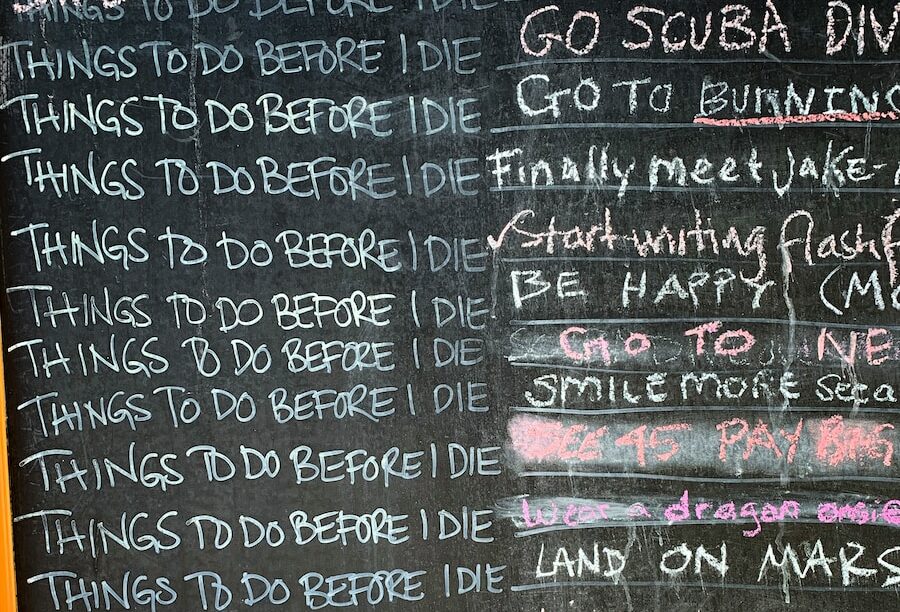 THINGS TO DO BEFORE I DIE
THINGS TO DO BEFORE I DIE GO SCUBA DIV
THINGS TO DO BEFORE I DIE GO TO BURNING
THINGS TO DO BEFORE I DIE Finally meet Jake-
THINGS TO DO BEFORE I DIE Start writing flash f
THINGS TO DO BEFORE I DIE BE HAPPY (MO
THINGS TO DO BEFORE I DIE GO TO NE
THINGS TO DO BEFORE I DIE SMILE MORE Seca
THINGS TO DO BEFORE I DIE 45 PAY
THINGS TO DO BEFORE I DIE Wear a dragon onsie
THINGS TO DO BEFORE I DIE LAND ON MARS